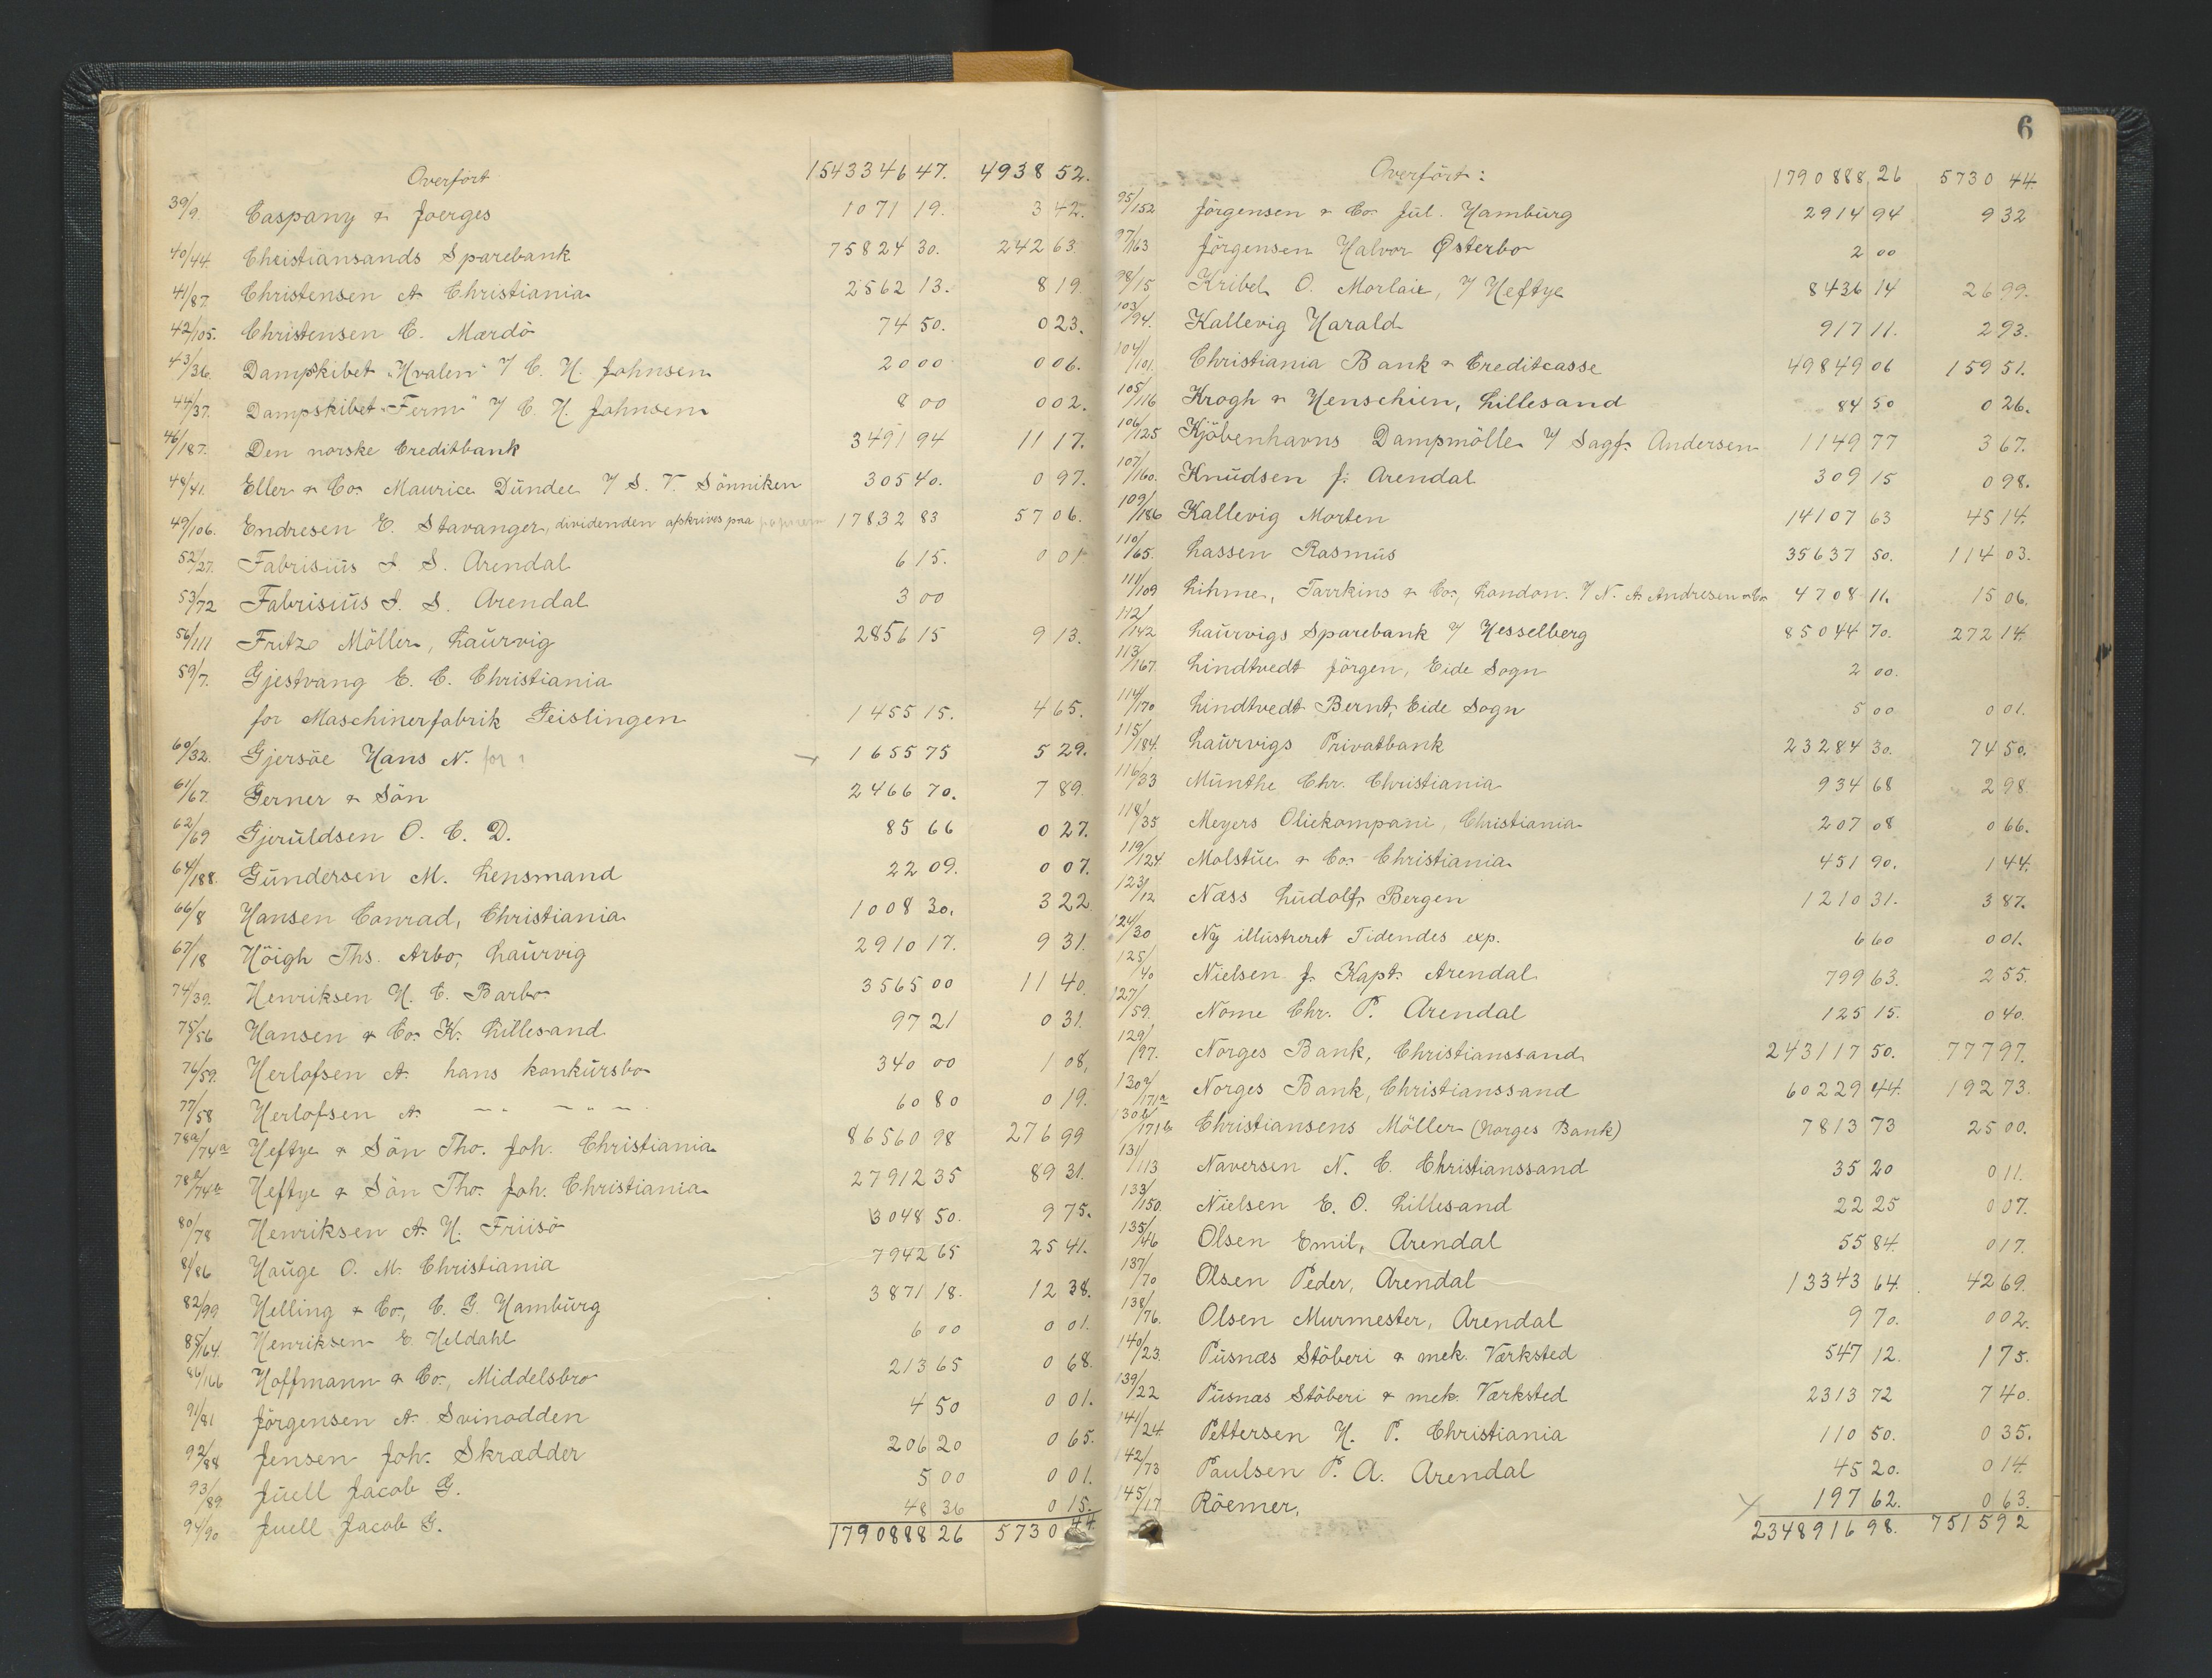 Overført 1543346 47. 4938 52.
39/9. Caspany & Joerges 1071 19. 3 42.
40/44. Christiansands Sparebank 75824 30. 242 63.
41/87. Christensen A. Christiania 2562 13. 8 19.
42/105. Christensen C. Mærdö 74 50. 0 23.
43/36. Dampskibet "Hvalen" V C. H. Johnsen 20 00 0 06.
44/37. Dampskibet "Ferm" V C. H. Johnsen 8 00 0 02.
46/187. Den norske Creditbank 3491 94 11 17.
48/41. Eller & Co. Maurice Dundee V S. V. Sönniken 305 40. 0 97.
49/106. Endresen E. Stavanger, dividenden afskrives paa 17832 83 57 06.
52/27. Fabrisius I. S. Arendal 6 15. 0 01
53/72 Fabrisius I. S. Arendal 3 00
56/111 Fritz Möller, Laurvig 2856 15 9 13.
59/7. Gjestvang E. C. Christiania
for Maschinerfabrik Geislingen 1455 15. 4 65.
60/32. Gjersöe Hans N. for 1655 75 5 29.
61/67. Gerner & Sön 2466 70. 7 89.
62/69 Gjeruldsen O. C. D. 85 66 0 27.
64/188. Gundersen M. Lensmand 22 09. 0 07.
66/8 Hansen Conrad, Christiania 1008 30. 3 22
67/18 Höigh Ths. Arbo, Laurvig 2910 17. 9 31.
74/39. Henriksen H. C. Barbo 3565 00 11 40.
75/56 Hansen & Co. K. Lillesand 97 21 0 31.
76/59. Herlofsen A. hans konkursbo 340 00 1 08.
77/58 Herlofsen A. — " — " — 60 80 0 19.
78a/74a Heftye & Sön Tho. Joh. Christiania 86560 98 276 99
78b/74b Heftye & Sön Tho. Joh. Christiania 27912 35 89 31.
80/78 Henriksen A. H. Friisö 3048 50. 9 75.
81/86 Hauge O. M. Christiania 7942 65 25 41.
82/99 Helling & Co., C. G. Hamburg 3871 18. 12 38.
85/64. Henriksen E. Heldahl 6 00 0 01.
86/166 Hoffmann & Co., Middelsbro 213 65 0 68.
91/81 Jörgensen A. Svinodden 4 50 0 01.
92/88 Jensen Joh. Skrædder 206 20 0 65.
93/89. Juell Jacob G. 5 00 0 01.
94/90 Juell Jacob G. 48 36 0 15.
1790888 26 5730 44.
6
Overført: 1790888 26 5730 44.
95/152 Jörgensen & Co. Jul. Hamburg 2914 94 9 32
97/163 Jörgensen Halvor Østerbo 2 00
98/15 Kribel O. Morlaix, V Heftye 8436 14 26 99.
103/94. Kallevig Harald 917 11. 2 93.
104/101. Christiania Bank & Creditcasse 49849 06 159 51.
105/116 Krogh & Henschien, Lillesand 84 50 0 26.
106/125 Kjöbenhavns Dampmölle V Sagf. Andersen 1149 77 3 67.
107/160. Knudsen J. Arendal 309 15 0 98.
109/186 Kallevig Morten 14107 63 45 14.
110/65. Lassen Rasmus 35637 50. 114 03.
111/109 Lihme, Tarrkins & Co., London. V N. A. Andresen & Co 4708 11. 15 06.
112/142 Laurvigs Sparebank V Hesselberg 85044 70. 272 14.
113/167. Lindtvedt Jörgen, Eide Sogn 2 00.
114/170 Lindtvedt Bernt, Eide Sogn 5 00 0 01.
115/184. Laurvigs Privatbank 23284 30. 74 50.
116/33 Munthe Chr. Christiania 934 68 2 98.
118/35 Meyers Oliekompani, Christiania 207 08 0 66.
119/124 Molstue & Co. Christiania 451 90. 1 44.
123/12 Næss Ludolf, Bergen 1210 31. 3 87.
124/30 Ny illustreret Tidendes exp. 6 60 0 01.
125/40 Nielsen J. Kapt. Arendal 799 63. 2 55.
127/59. Nome Chr. P. Arendal 125 15. 0 40.
129/97. Norges Bank, Christianssand 243117 50. 777 97.
130a/171a Norges Bank, Christianssand 60229 44. 192 73.
130b/171b Christiansens Möller (Norges Bank) 7813 73 25 00.
131/113 Naversen N. C. Christianssand 35 20 0 11.
133/150. Nielsen E. O. Lillesand 22 25 0 07.
135/46 Olsen Emil, Arendal 55 84. 0 17.
137/70 Olsen Peder, Arendal 13343 64. 42 69.
138/76. Olsen Murmester, Arendal 9 70. 0 02.
140/23. Pusnæs Stöberi & mek. Værksted 547 12. 1 75.
139/22 Pusnæs Stöberi & mek. Værksted 2313 72 7 40.
141/24 Pettersen H. P. Christiania 110 50. 0 35.
142/73 Paulsen P. A. Arendal 45 20. 0 14.
145/17 Röemer, 197 62. 0 63.
2348916 98. 7515 92